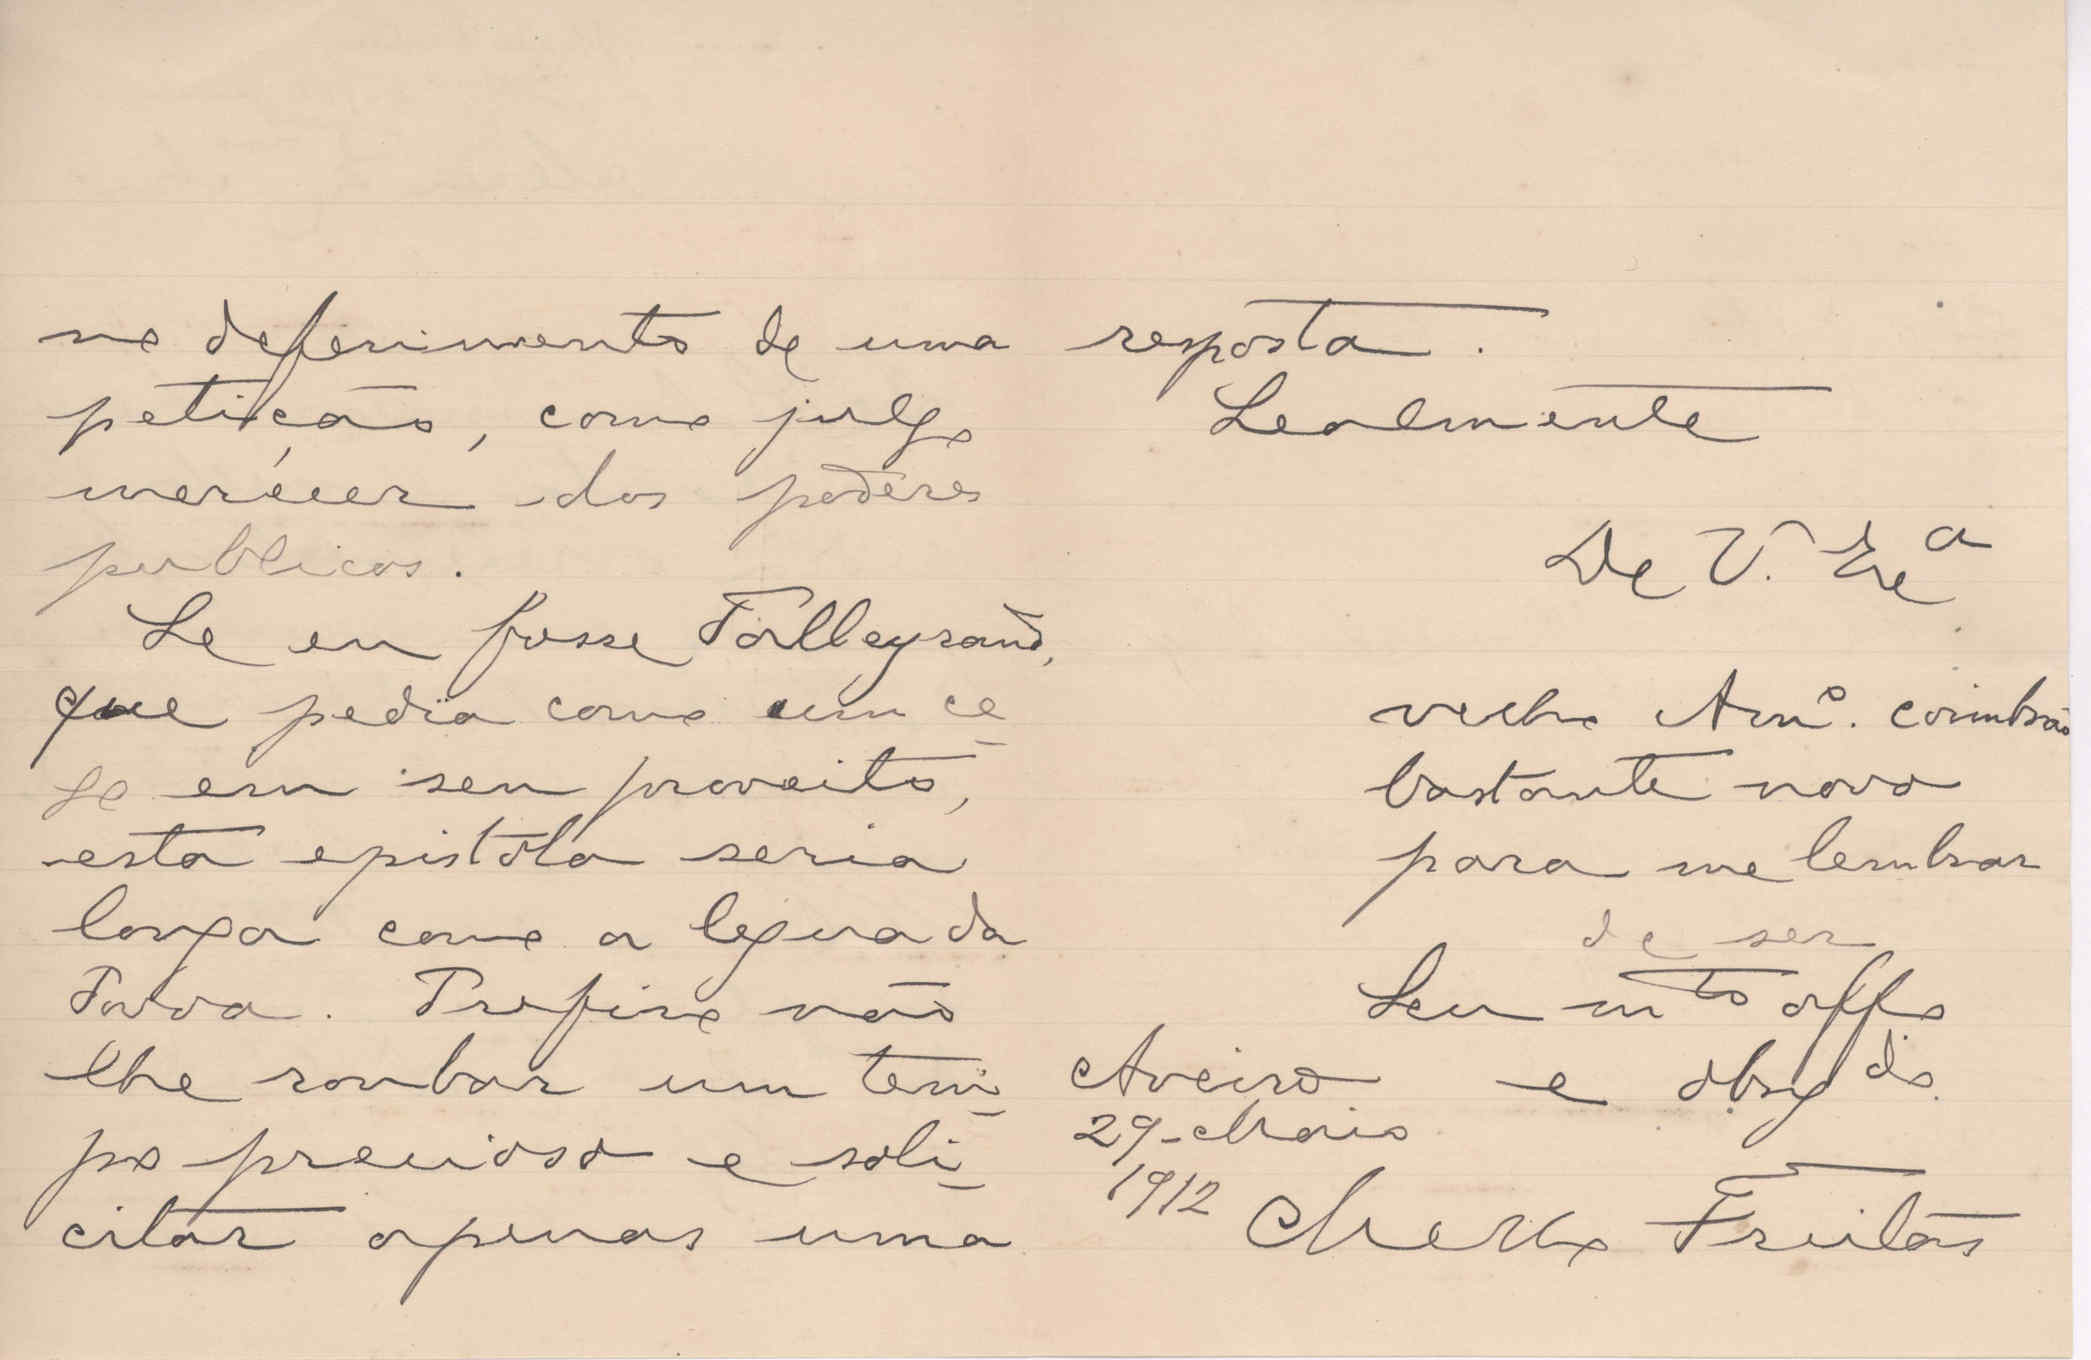 no deferimento de uma
petição, como julgo
merecer dos poderes
publicos.
Se eu fosse Talleyrand,
que pedia como um ce
go em seu proveito,
esta epistola seria
longa como a legua da
Povoa. Prefiro não
lhe roubar um tem-
po precioso e soli-
citar apenas uma
resposta.
Lealmente
De V. Exª
velho Amº. coimbrão
bastante novo
para me lembrar
de ser
Seu mto affo
e obrgdo.
Aveiro
29-Maio
1912
Mello Freitas